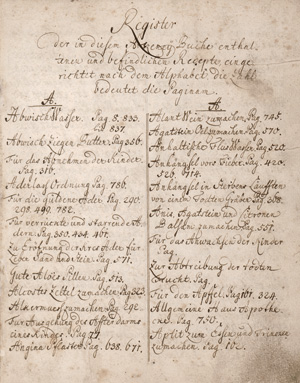 Register
Der in diesem Artzney-Buche enthal-
tenen und befindlichen Recepte einge-
richtet nach dem Alphabet, die Zahl
bedeutet die Paginam.
A.
Abwisch Wasser. Pag. 8. 833.
837.
Abwisch Ziegen Butter. Pag. 356.
Für das Abnehmen der Kinder.
Pag. 516.
Aderlas Ordnung Pag. 786.
Für die güldene Ader Pag. 290.
298. 499. 782.
Für verruckte und starrende A-
dern. Pag. 350. 454. 467.
Zu Eröffnung der
Leber Pag. 571.
Gute Aloes Pillen Pag. 513.
Zettel zumachen Pag.
zumachen Pag. 291.
Für Ausgehung des Affterdarms
eines Kindes. Pag. 77.
Angina Pflaster Pag. 638. 671.
A.
Alant Wein zumachen. Pag. 745.
Agatstein Oel zumachen Pag. 570.
Anhaltische Flus Wasser. Pag. 520.
Anhängsel vors Fieber. Pag. 420.
526. 714.
Anhängsel in Sterbens Läufften
von einem Pag. 308.
Anis, Agatstein und Citronen
Balsam zumachen Pag. 557.
Für das Anwachsen der Kinder
Pag.
Zur Abtreibung der todten
Frucht. Pag.
Für den Pag. 161. 324.
Allgemeine Haus Apothe-
cke. Pag. 750.
Aptit zum Essen und Trincken
zumachen. Pag.